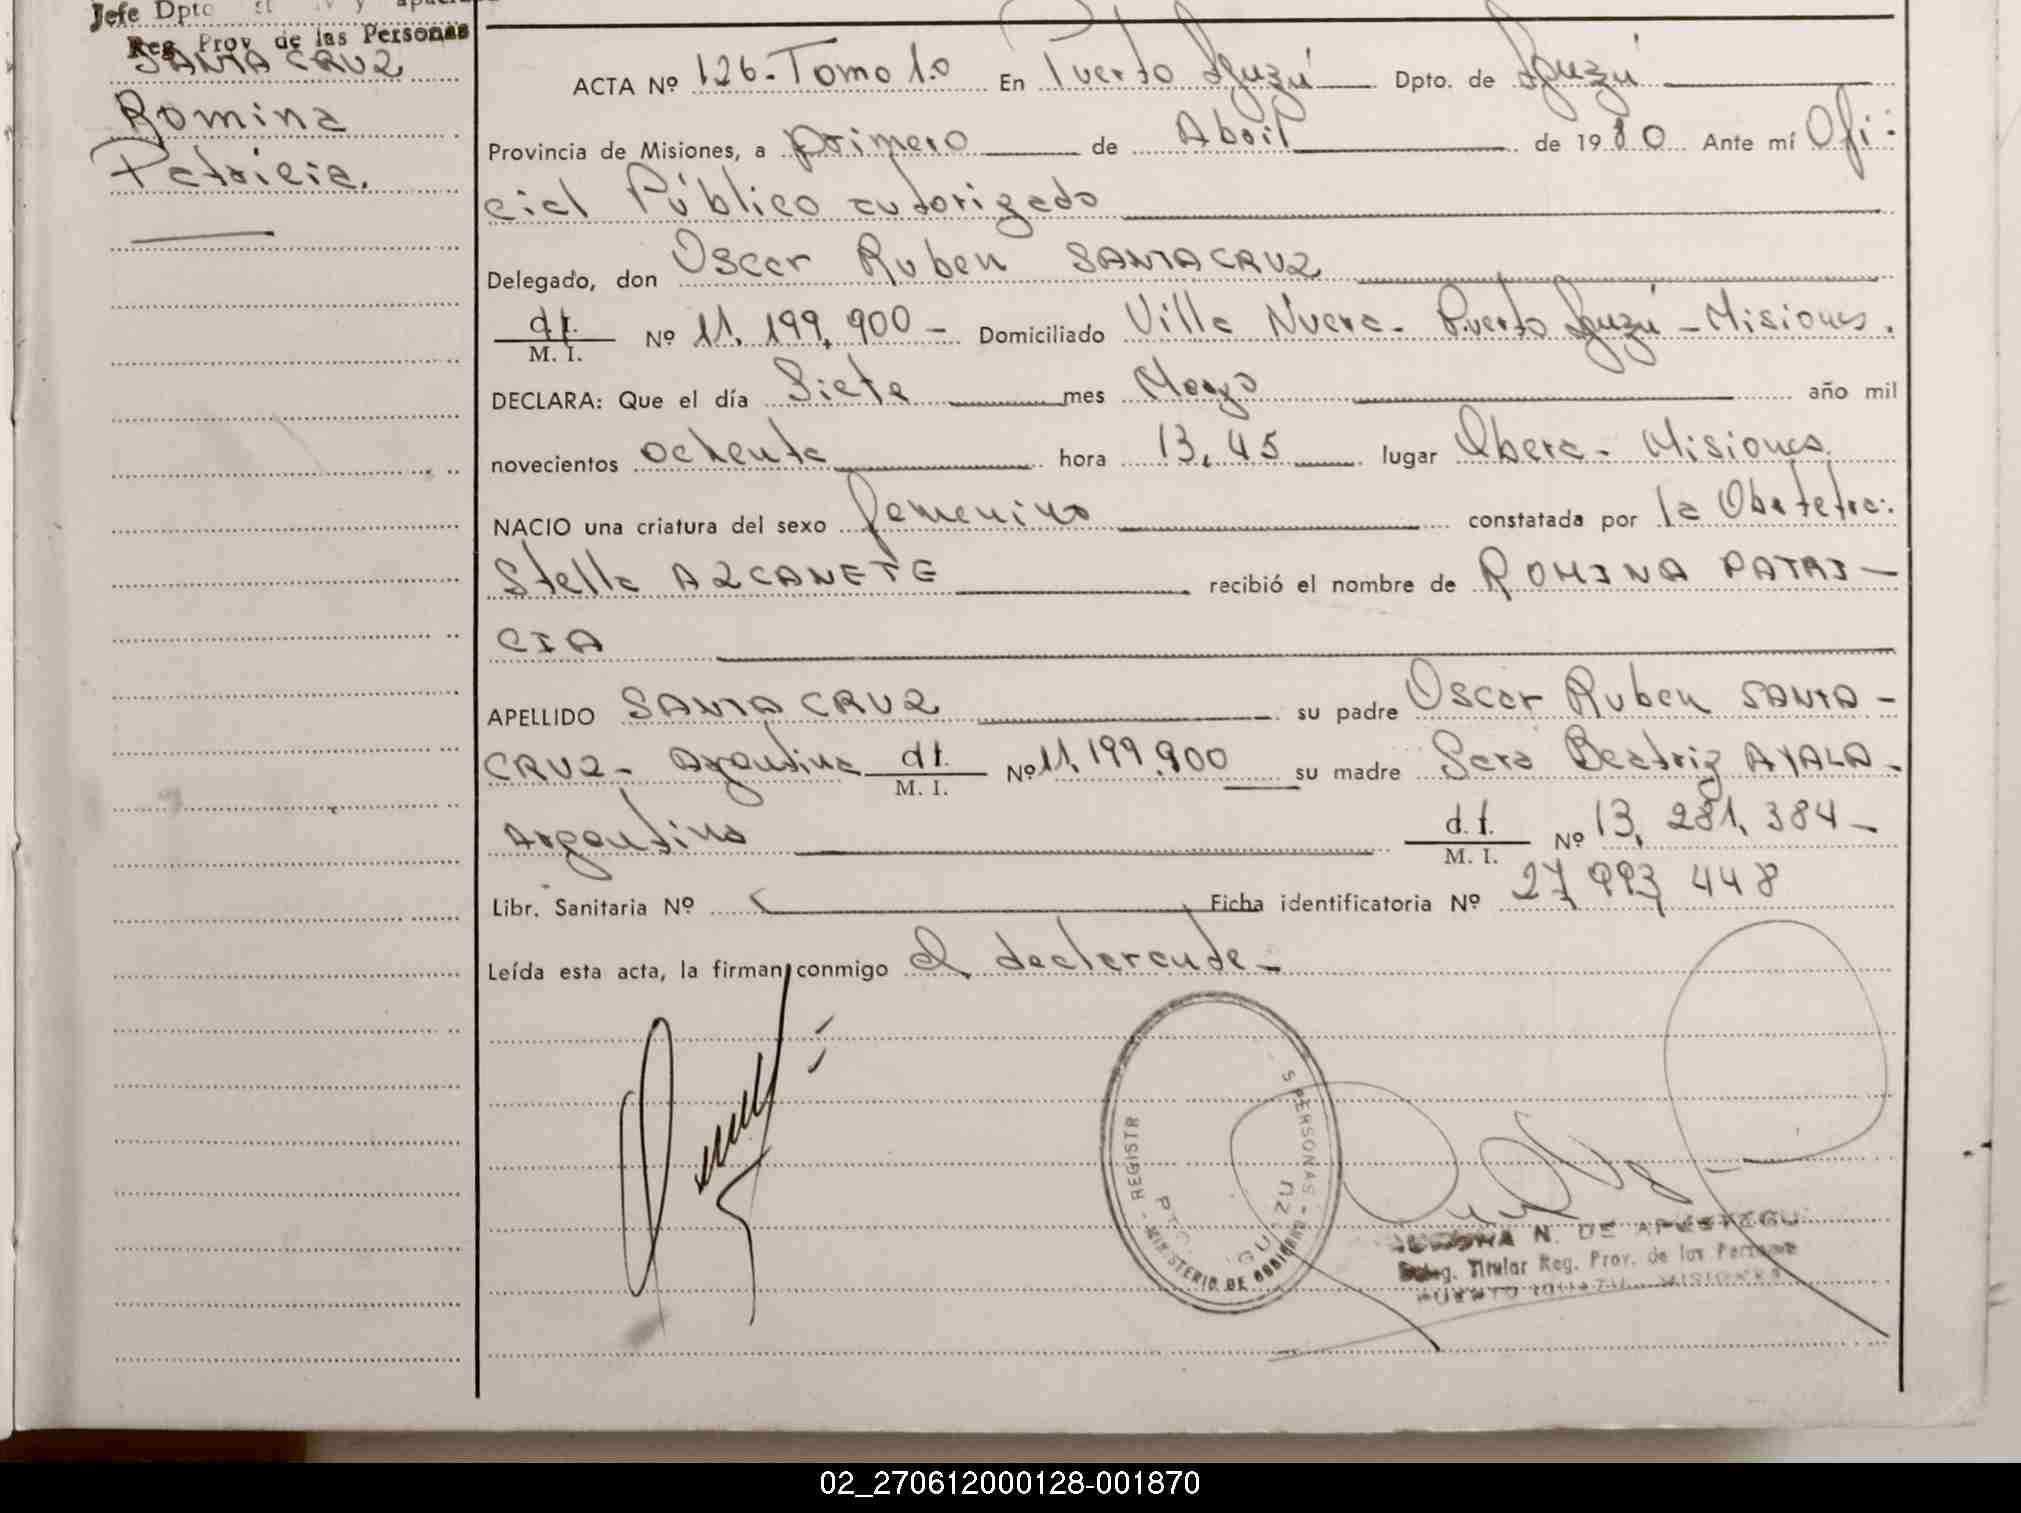 Jefe Dpto
Reg. Prov. de las Personas
SANTA CRUZ
Romina
Patricia.
ACTA Nº 126. Tomo 1.o En Puerto Iguazú Dpto. de Iguazú
Provincia de Misiones, a primero de Abril de 1980 Ante mí Ofi-
cial Público autorizado
Delegado, don Oscar Ruben SANTA CRUZ
d.t. M. I. Nº 11.199.900 - Domiciliado Villa Nueva - Puerto Iguazú - Misiones.
DECLARA: Que el día Siete mes Mayo año mil
novecientos ochenta hora 13,45 lugar Obera - Misiones
NACIO una criatura del sexo femenino constatada por la Obstetra:
Stella AZCANETE recibió el nombre de ROMINA PATRI-
CIA
APELLIDO SANTA CRUZ su padre Oscar Ruben SANTA -
CRUZ - Argentina d.t. M. I. Nº 11.199.900 su madre Sara Beatriz AYALA -
Argentina d.t. M. I. Nº 13.281.384 -
Libr. Sanitaria Nº Ficha identificatoria Nº 27.993.448
Leída esta acta, la firman conmigo el declarante -
REGISTR S PERSONAS - MINISTERIO DE GOBIERNO
PTO. IGUAZU
N. DE
Deleg. Titular Reg. Prov. de las Personas
PUERTO IGUAZU - MISIONES
02_270612000128-001870